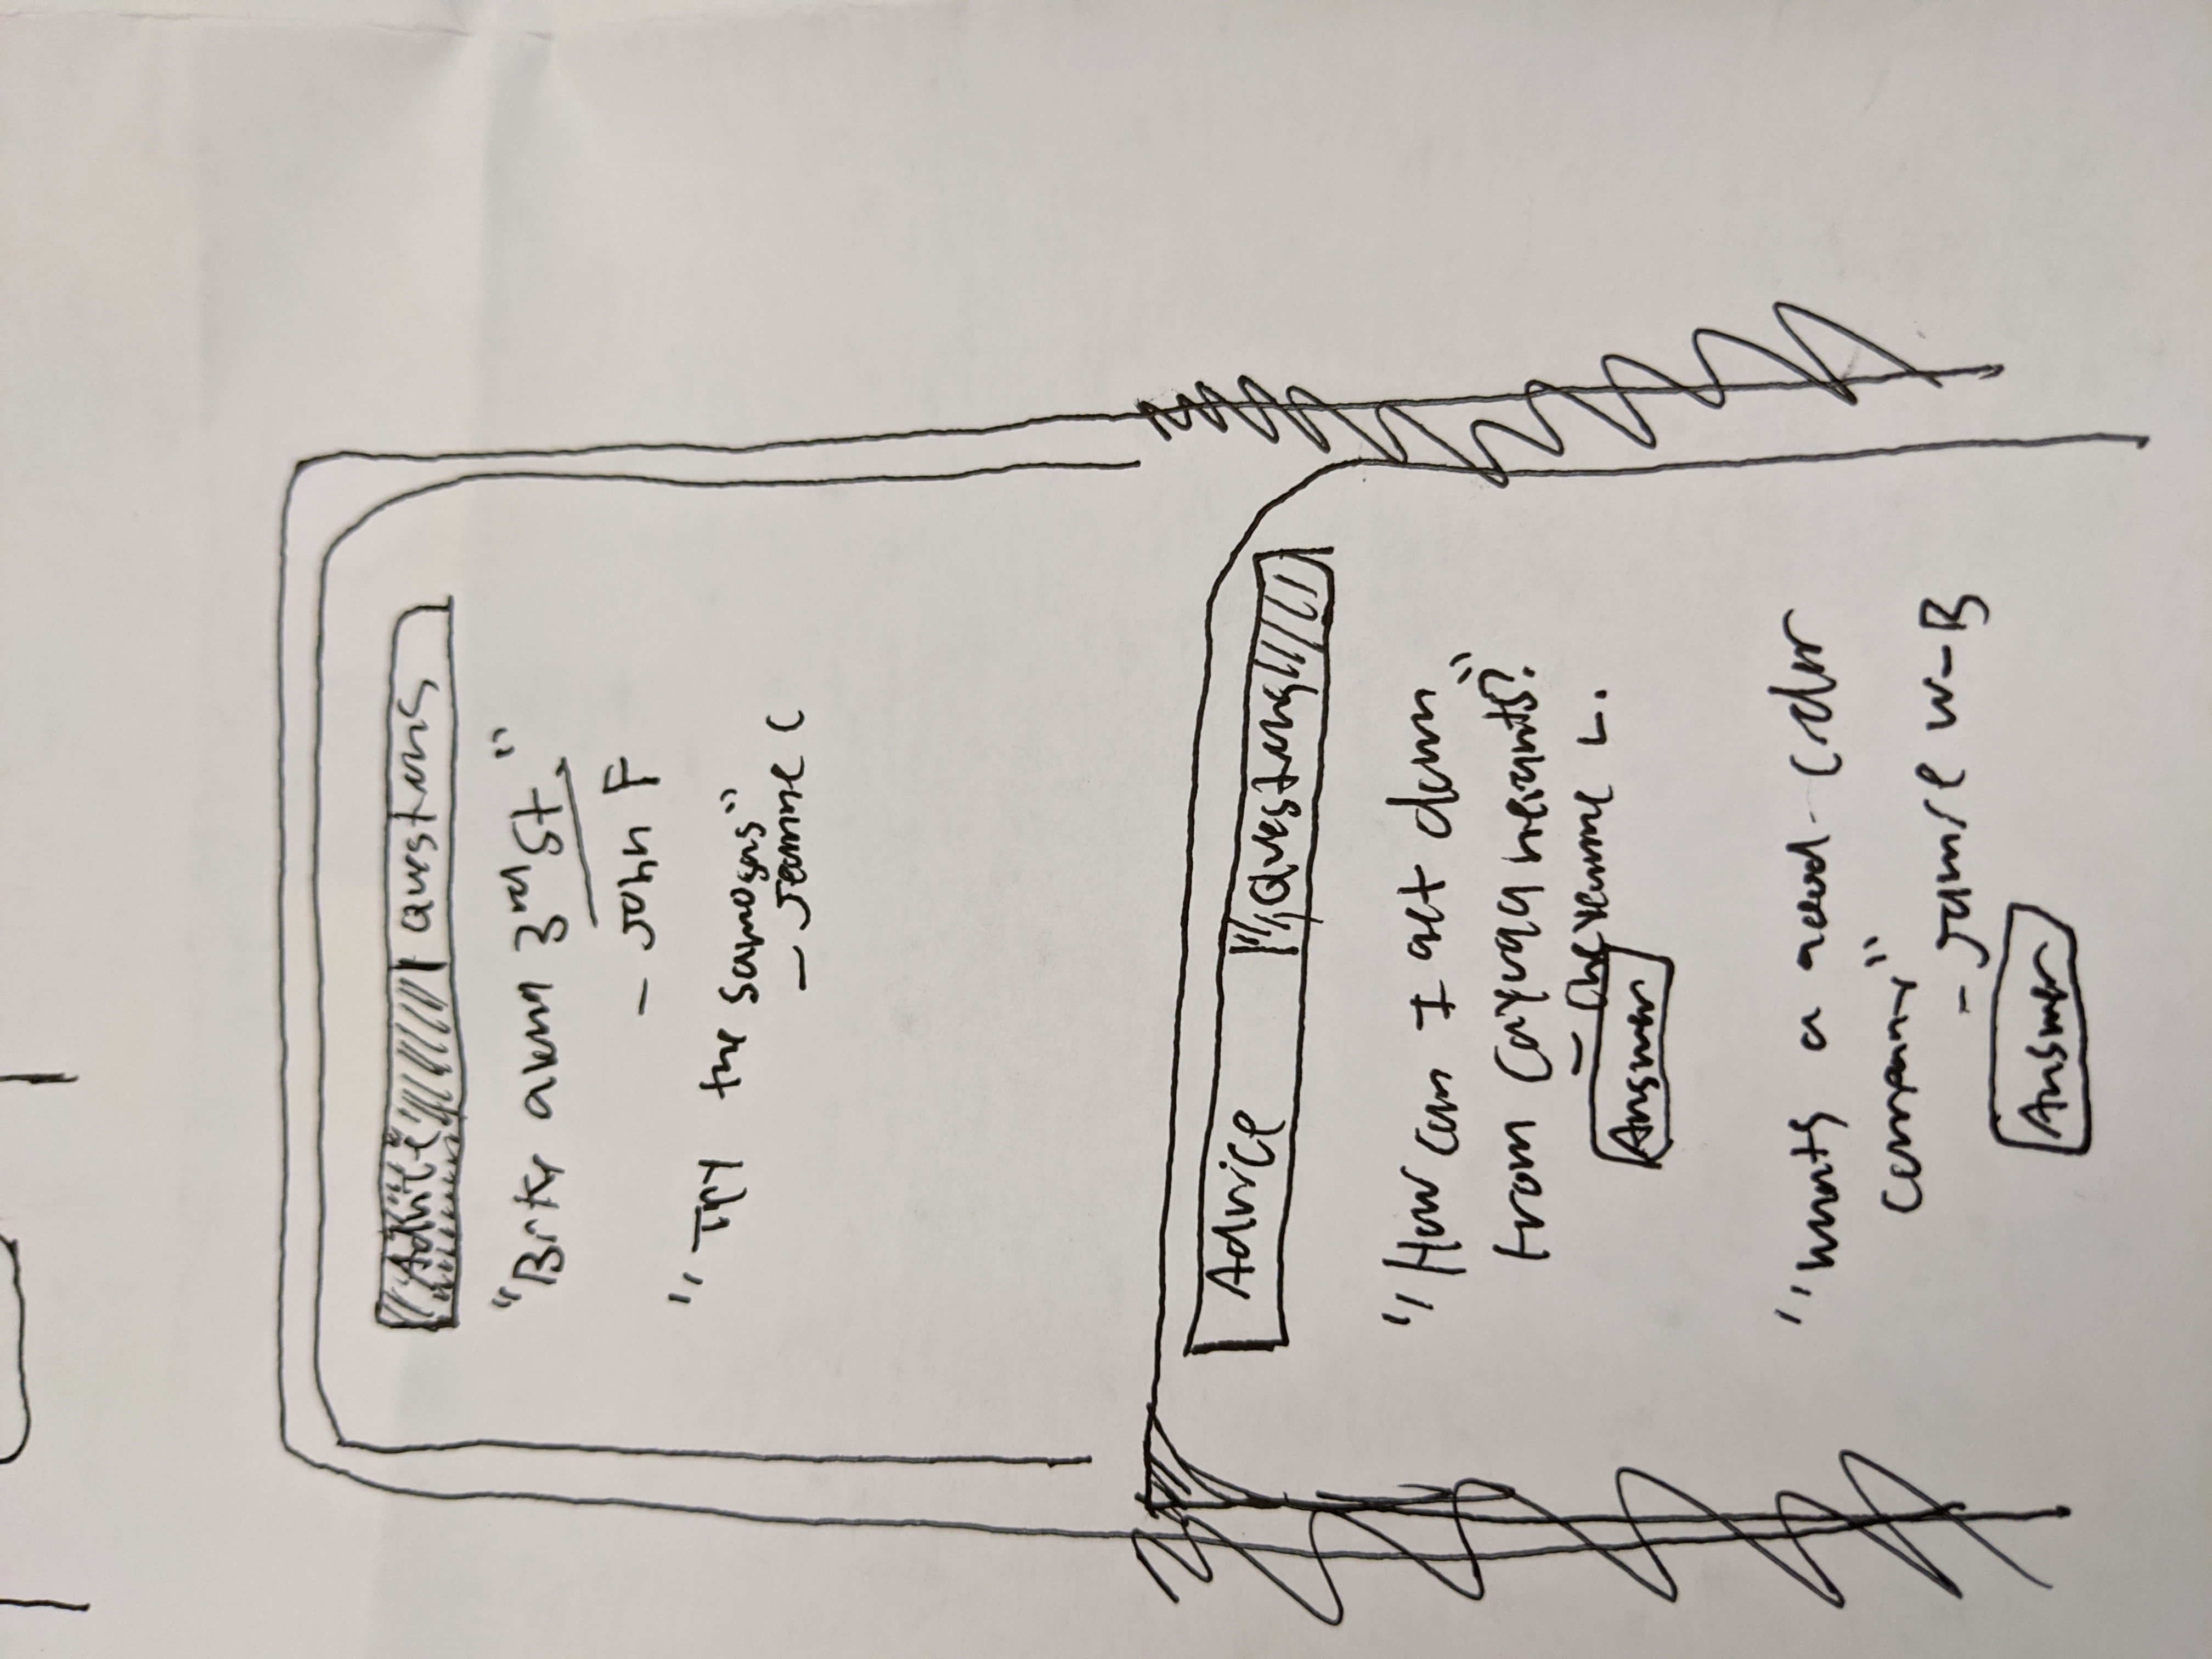 Advice Questions
"Bike along 3rd St."
- John F
"Try the samosas"
- Jeanine C
Advice Questions
"How can I get down
from Cayuga heights?"
- Cheyenne L.
Answer
"Whats a good cider
company"
- Jamie W-B
Answer